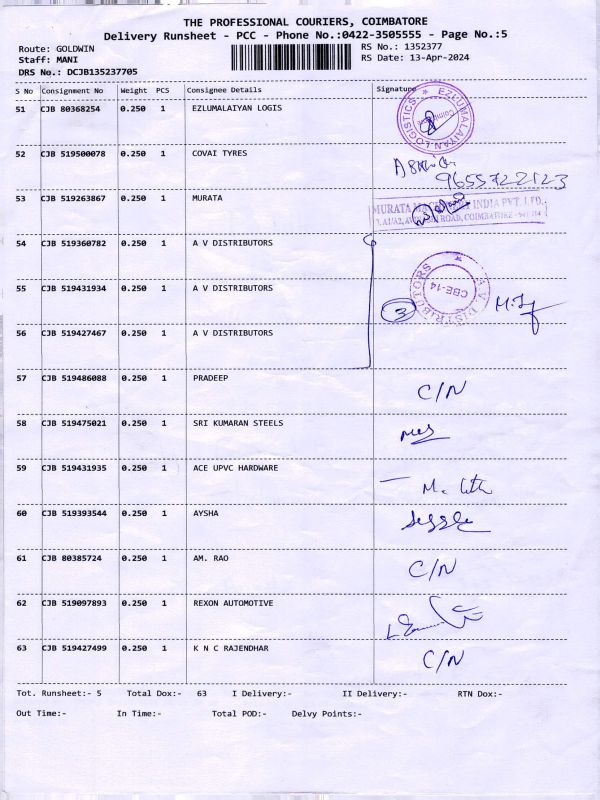 THE PROFESSIONAL COURIERS, COIMBATORE
Delivery Runsheet - PCC - Phone No.:0422-3505555 - Page No.:5
Route: GOLDWIN RS No.: 1352377
Staff: MANI RS Date: 13-Apr-2024
DRS No.: DCJB135237705
S No Consignment No Weight PCS Consignee Details Signature
51 CJB 80368254 0.250 1 EZLUMALAIYAN LOGIS
EZLUMALAIYAN LOGISTICS ★ Coimbatore
52 CJB 519500078 0.250 1 COVAI TYRES
9655722123
53 CJB 519263867 0.250 1 MURATA
MURATA INDIA PVT. LTD.
ROAD, COIMBATORE
54 CJB 519360782 0.250 1 A V DISTRIBUTORS
55 CJB 519431934 0.250 1 A V DISTRIBUTORS
A.V. DISTRIBUTORS ★ CBE-14
3
56 CJB 519427467 0.250 1 A V DISTRIBUTORS
57 CJB 519486088 0.250 1 PRADEEP C/N
58 CJB 519475021 0.250 1 SRI KUMARAN STEELS
59 CJB 519431935 0.250 1 ACE UPVC HARDWARE
60 CJB 519393544 0.250 1 AYSHA
61 CJB 80385724 0.250 1 AM. RAO C/N
62 CJB 519097893 0.250 1 REXON AUTOMOTIVE
63 CJB 519427499 0.250 1 K N C RAJENDHAR C/N
Tot. Runsheet:- 5 Total Dox:- 63 I Delivery:- II Delivery:- RTN Dox:-
Out Time:- In Time:- Total POD:- Delvy Points:-